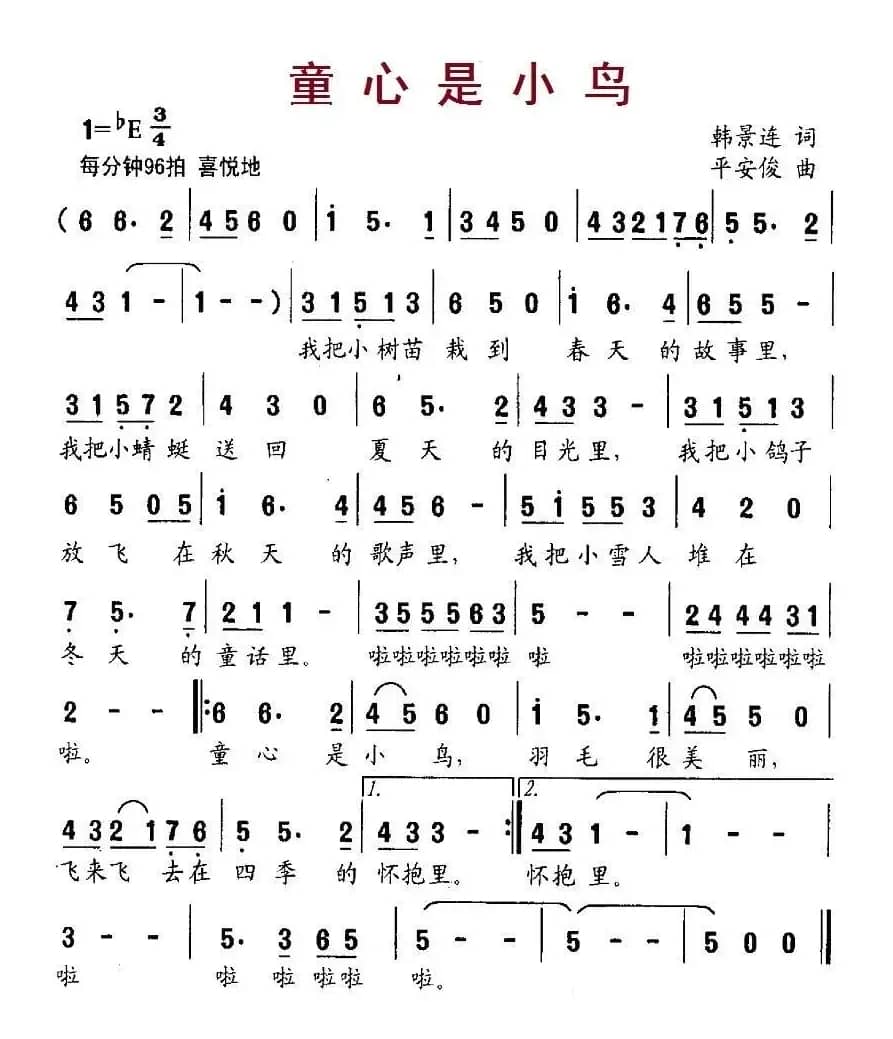 童心是小鸟
1=♭E 3/4
韩景连 词
每分钟96拍 喜悦地
平安俊 曲
( 6 6. 2 | 4 5 6 0 | i 5. 1 | 3 4 5 0 | 4 3 2 1 7 6 | 5 5. 2 |
4 3 1 - | 1 - - ) | 3 1 5 1 3 | 6 5 0 | i 6. 4 | 6 5 5 - |
我把小树苗 栽到 春天 的故事里，
3 1 5 7 2 | 4 3 0 | 6 5. 2 | 4 3 3 - | 3 1 5 1 3 |
我把小蜻蜓 送回 夏天 的目光里， 我把小鸽子
6 5 0 5 | i 6. 4 | 4 5 6 - | 5 i 5 5 3 | 4 2 0 |
放飞 在秋天 的歌声里， 我把小雪人 堆在
7 5. 7 | 2 1 1 - | 3 5 5 5 6 3 | 5 - - | 2 4 4 4 3 1 |
冬天 的童话里。 啦啦啦啦啦啦 啦 啦啦啦啦啦啦
2 - - ‖: 6 6. 2 | 4 5 6 0 | i 5. 1 | 4 5 5 0 |
啦。 童心 是小鸟， 羽毛 很美丽，
1. 2.
4 3 2 1 7 6 | 5 5. 2 | 4 3 3 - :‖ 4 3 1 - | 1 - - |
飞来飞 去在 四季 的怀抱里。 怀抱里。
3 - - | 5. 3 6 5 | 5 - - | 5 - - | 5 0 0 ‖
啦 啦 啦 啦啦 啦。